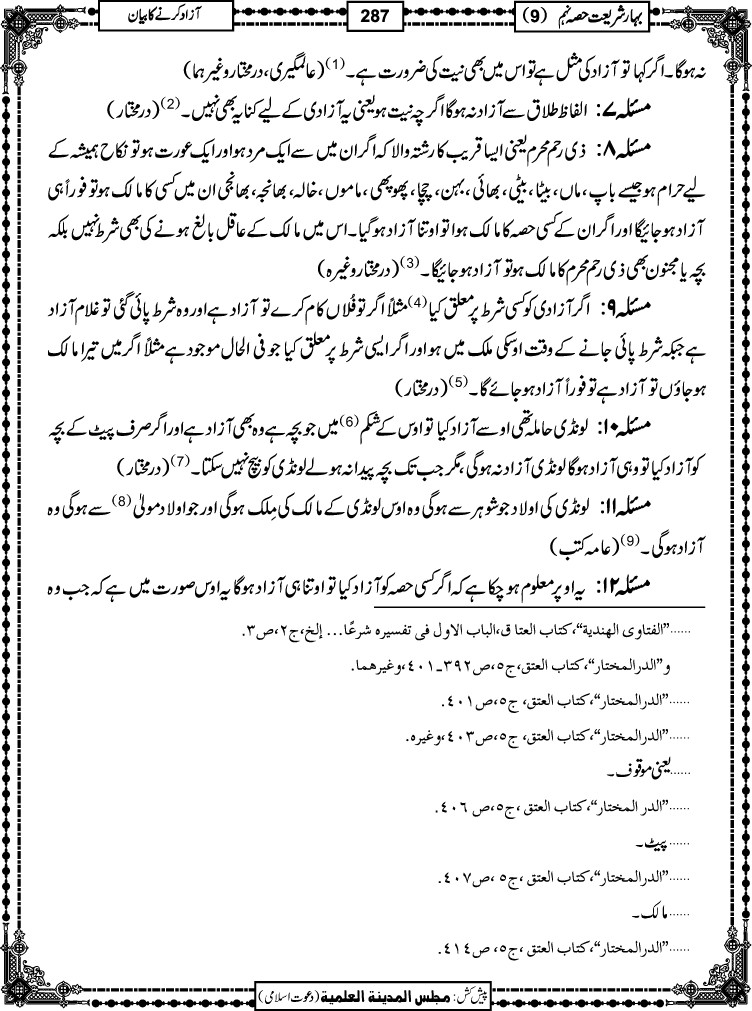 بہارِ شریعت حصہ نہم (9)
287
آزاد کرنے کا بیان
نہ ہوگا۔ اگر کہا تو آزاد کی مثل ہے تو اس میں بھی نیت کی ضرورت ہے۔(1) (عالمگیری، درمختار وغیرہما)
مسئلہ ۷: الفاظِ طلاق سے آزاد نہ ہوگا اگرچہ نیت ہو یعنی یہ آزادی کے لیے کنایہ بھی نہیں۔(2) (درمختار)
مسئلہ ۸: ذی رحم محرم یعنی ایسا قریب کا رشتہ والا کہ اگر ان میں سے ایک مرد ہو اور ایک عورت ہو تو نکاح ہمیشہ کے
لیے حرام ہو جیسے باپ، ماں، بیٹا، بیٹی، بھائی، بہن، چچا، پھوپھی، ماموں، خالہ، بھانجہ، بھانجی ان میں کسی کا مالک ہو تو فوراً ہی
آزاد ہو جائیگا اور اگر ان کے کسی حصہ کا مالک ہوا تو اوتنا آزاد ہو گیا۔ اس میں مالک کے عاقل بالغ ہونے کی بھی شرط نہیں بلکہ
بچہ یا مجنون بھی ذی رحم محرم کا مالک ہو تو آزاد ہو جائیگا۔(3) (درمختار وغیرہ)
مسئلہ ۹: اگر آزادی کو کسی شرط پر معلق کیا(4) مثلاً اگر تو فُلاں کام کرے تو آزاد ہے اور وہ شرط پائی گئی تو غلام آزاد
ہے جبکہ شرط پائی جانے کے وقت اوسکی ملک میں ہو اور اگر ایسی شرط پر معلق کیا جو فی الحال موجود ہے مثلاً اگر میں تیرا مالک
ہو جاؤں تو آزاد ہے تو فوراً آزاد ہو جائے گا۔(5) (درمختار)
مسئلہ ۱۰: لونڈی حاملہ تھی اوسے آزاد کیا تو اوس کے شکم(6) میں جو بچہ ہے وہ بھی آزاد ہے اور اگر صرف پیٹ کے بچہ
کو آزاد کیا تو وہی آزاد ہوگا لونڈی آزاد نہ ہوگی، مگر جب تک بچہ پیدا نہ ہولے لونڈی کو بیچ نہیں سکتا۔(7) (درمختار)
مسئلہ ۱۱: لونڈی کی اولاد جو شوہر سے ہوگی وہ اوس لونڈی کے مالک کی مِلک ہوگی اور جو اولاد مولیٰ(8) سے ہوگی وہ
آزاد ہوگی۔(9) (عامہ کتب)
مسئلہ ۱۲: یہ اوپر معلوم ہو چکا ہے کہ اگر کسی حصہ کو آزاد کیا تو اوتنا ہی آزاد ہوگا یہ اوس صورت میں ہے کہ جب وہ
......”الفتاوی الهندية“، کتاب العتاق، الباب الاول فی تفسیرہ شرعًا... إلخ، ج۲، ص۳.
و”الدرالمختار“، کتاب العتق، ج٥، ص۳۹۲ـ٤۰۱، وغیرهما.
......”الدرالمختار“، کتاب العتق، ج٥، ص٤۰۱.
......”الدرالمختار“، کتاب العتق، ج٥، ص٤۰۳، وغیره.
......یعنی موقوف۔
......”الدر المختار“، کتاب العتق، ج٥، ص ٤۰٦.
...... پیٹ۔
......”الدرالمختار“، کتاب العتق، ج٥، ص٤۰۷.
...... مالک۔
......”الدرالمختار“، کتاب العتق، ج٥، ص ٤۱٤.
پیش کش: مجلس المدینة العلمیة (دعوت اسلامی)